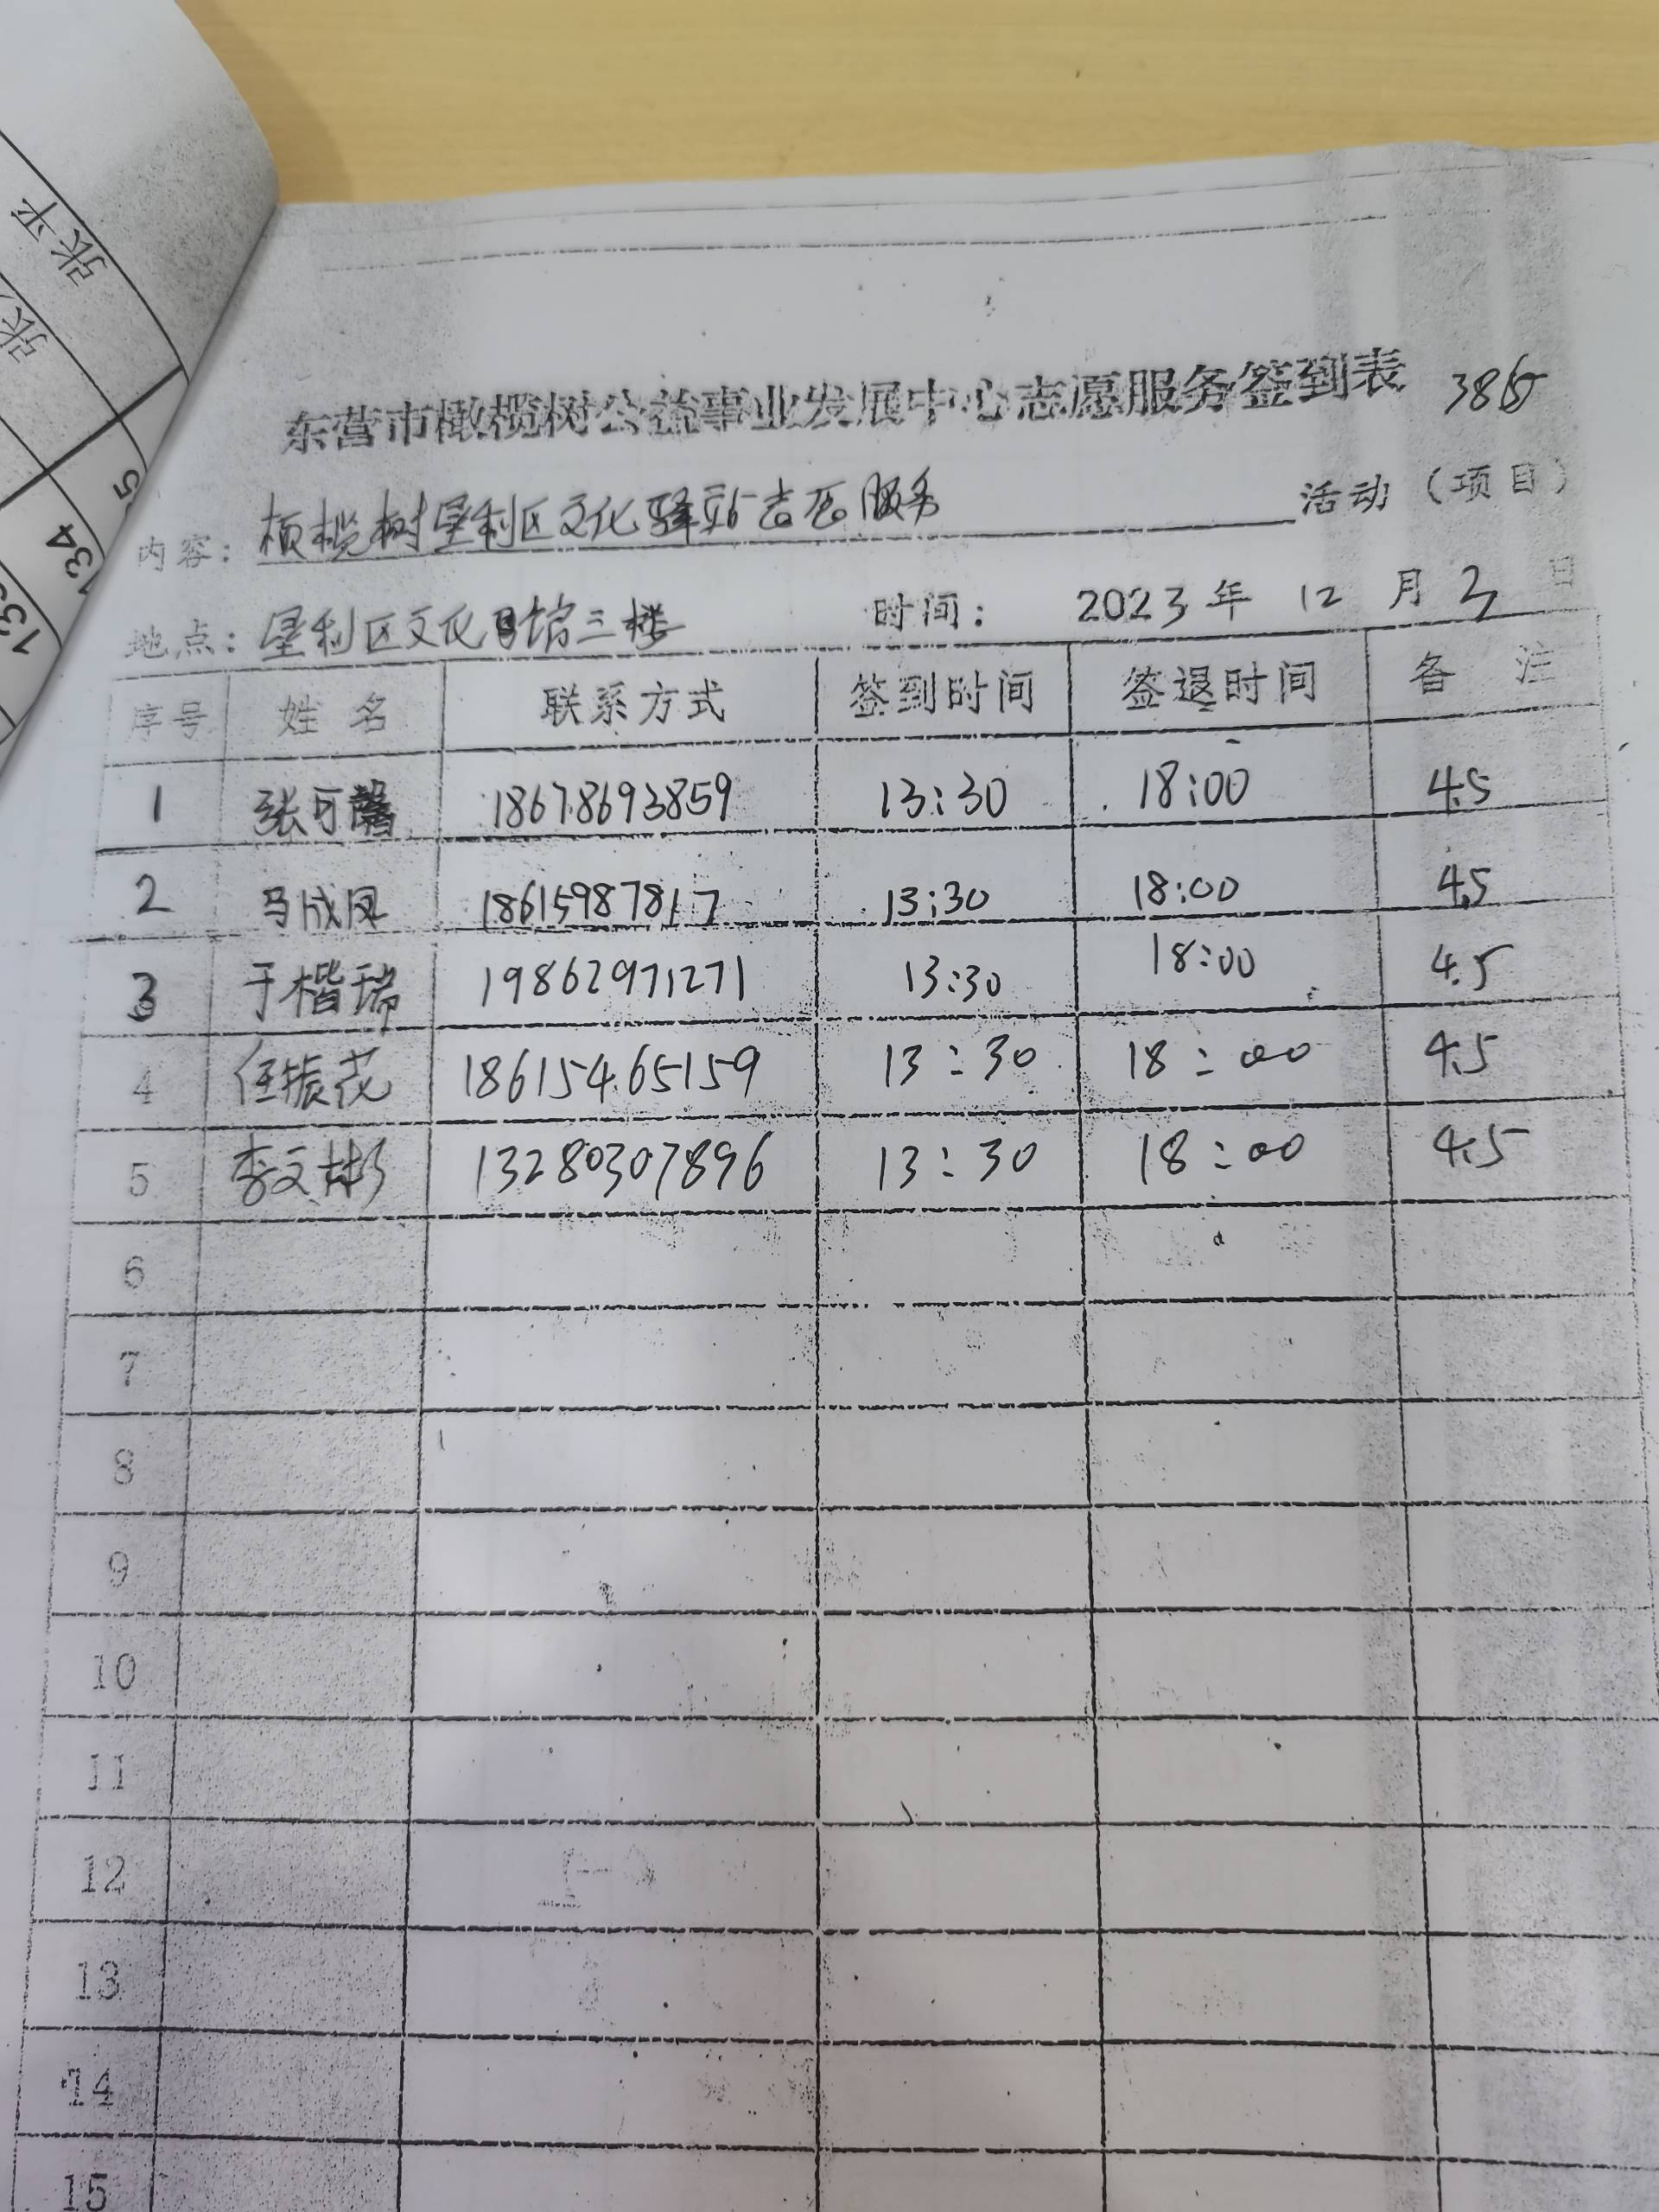 张平
张
5
134
133
东营市橄榄树公益事业发展中心志愿服务签到表 386
内容: 橄榄树垦利区文化驿站志愿服务 活动（项目）
地点: 垦利区文化馆三楼 时间: 2023年 12 月 3 日
序号 姓名 联系方式 签到时间 签退时间 备注
1 张可馨 18678693859 13:30 18:00 4.5
2 马成凤 18615987817 13:30 18:00 4.5
3 于楷瑞 19862971271 13:30 18:00 4.5
4 任振花 18615465159 13:30 18:00 4.5
5 李文彬 13280307896 13:30 18:00 4.5
6
7
8
9
10
11
12
13
14
15